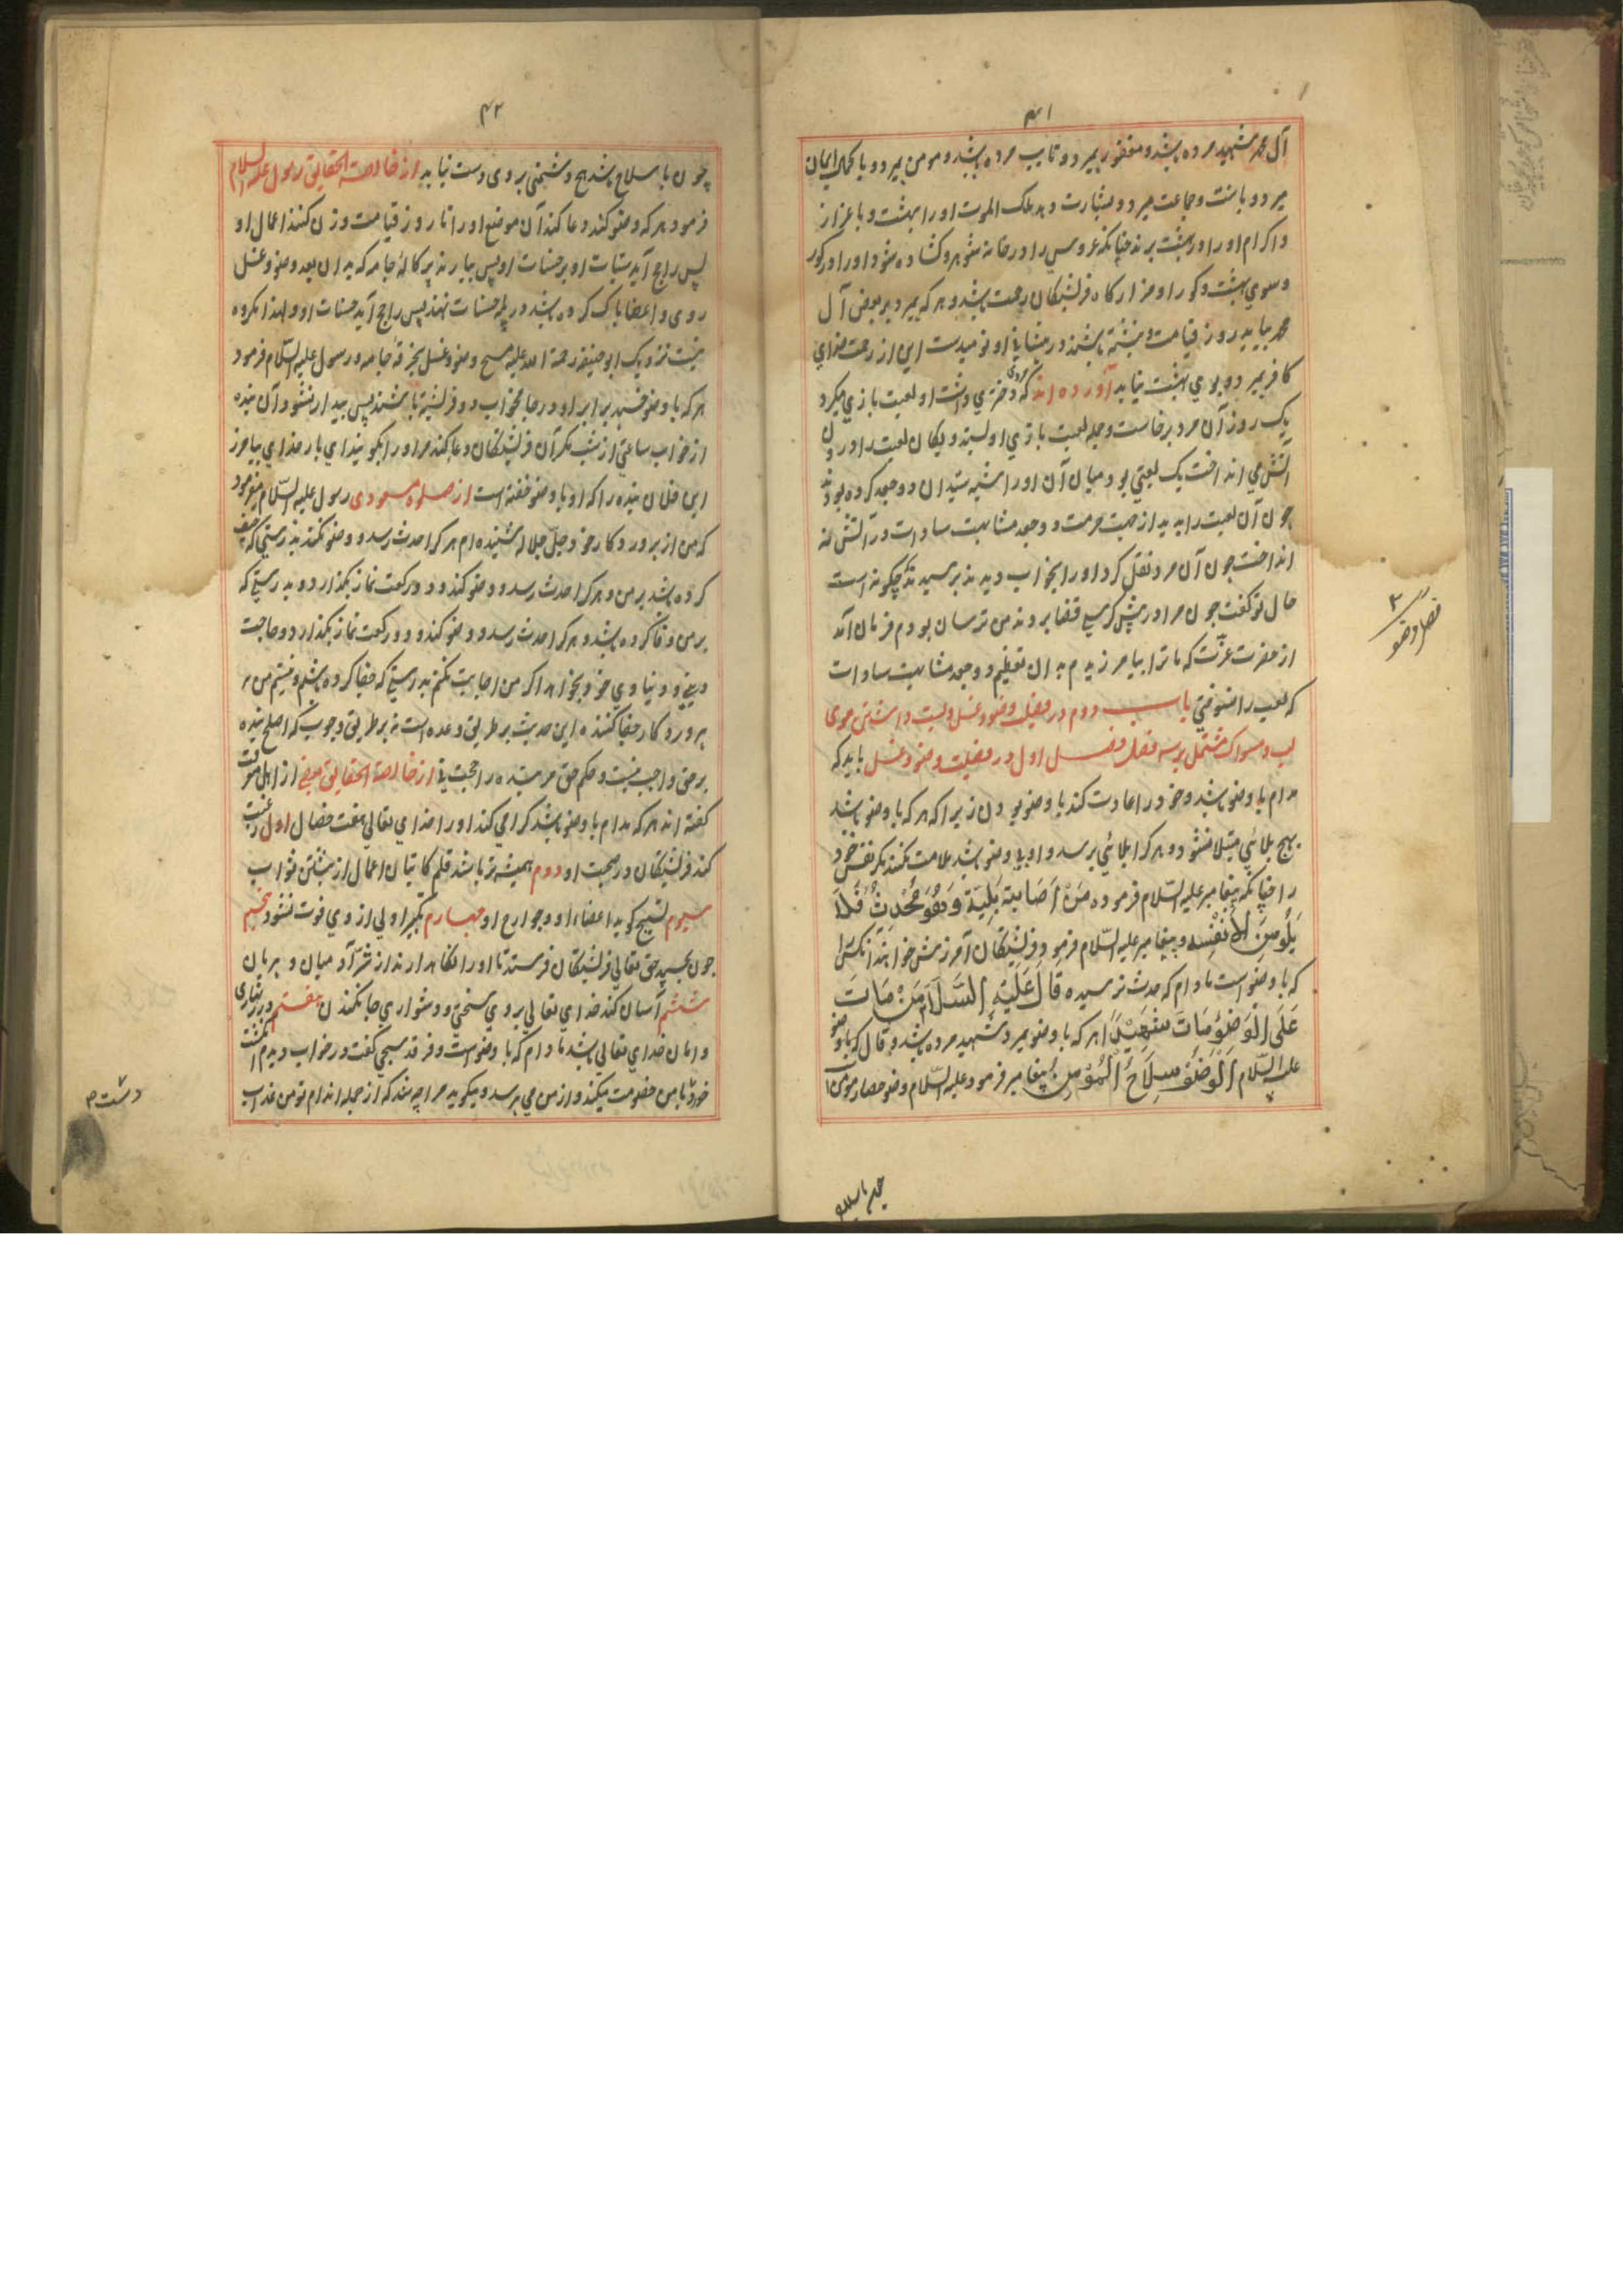 ۴۱
آل محمد شهید مرده باشد و مغفور بمیرد و تایب مرده باشد و مومن بمیرد و با کمال ایمان
میرد و با سنت و جماعت میرد و بشارت دهد ملک الموت او را بهشت و با عزاز
و اکرام او را در بهشت برند چنانکه عروس را در خانه شوهر و کشاده شود او را در کور
و سوی بهشت و کور او مزار کاه فرشتکان رحمت باشد و هر که بمیرد بر بغض آل
محمد بیاید روز قیامت و نبشته باشند در پیشانی او نومیدست این از رحمت خدای
کافر بمیرد و بوی بهشت نیابد آورده اند که مردی دختری داشت او لعبت بازی میکرد
یک روز آن مرد برخاست و جمله لعبت بازی او بستد و یکان یکان لعبت را در
آتش می انداخت یک لعبتی بود میان آن او را شبه سیدان دو جعد کرده بودند
چون آن لعبت را بدید از جهت حرمت دو جعد مشابهت سادات در آتش نه
انداخت چون آن مرد نقل کرد او را بخواب دیدند پرسیدند که چگونه است
حال تو گفت چون مرا در پیش کرسی قضا بردند من ترسان بودم فرمان آمد
از حضرت عزت که ما ترا بیامرزیدم بدان تعظیم دو جعد مشابهت سادات
که لعب را نسوختی باب دوم در فضیلت وضو و غسل و پست داشتن موی
لب و مسواک مشتمل بر سه فصل فصل اول در فضیلت وضو و غسل باید که
مدام با وضو باشد و خود را عادت کند با وضو بودن زیرا که هر که با وضو باشد
بهیچ بلائی مبتلا نشود و هر کرا بلائی برسد و او بی وضو باشد ملامت نکند مکر نفس خود
را چنانکه پیغامبر علیه السّلام فرموده مَنْ اَصَابَتهُ بَلِیَّة وَهُوَ مُحْدِثٌ فَلَا
یَلُومَنَّ اِلَّا نَفْسَه و پیغامبر علیه السّلام فرمود فرشتکان آمرزش خواهند انکس را
که با وضو است مادام که حدث نرسیده قَالَ عَلَیْهِ السَّلَام مَنْ مَاتَ
عَلَی الْوَضُوْءِ مَاتَ شَهِیْدًا هر که با وضو بمیرد شهید مرده باشد و قال که با وضو
علیه السّلام اَلْوَضُوْءُ سِلَاحُ الْمُؤْمِنِ پیغامبر فرمود علیه السّلام وضو حصار مومن است
فصل وضو
۴۲
چون با سلاح باشد هیچ دشمنی بر وی دست نیابد از خلاصة الحقایق رسول علیه السلام
فرمود هر که وضو کند و عا کند آن موضع او را تا روز قیامت وزن کنند اعمال او
پس راجح آید سیّات او بر حسنات او پس بیارند پرکالهٔ جامه که بدان بعد وضو و غسل
روی و اعضا پاک کرده باشد در پله حسنات نهند پس راجح آید حسنات او و لهذا مکروه
نیست نزدیک ابو حنیفه رحمة الله علیه مسح وضو و غسل بخرقهٔ جامه و رسول علیه السّلام فرمود
هر که با وضو خسپد برابر او در جامه خواب دو فرشته باشند پس بیدار نشود آن بنده
از خواب ساعتی از شب مکر آن فرشتکان دعا کنند مر او را بکویند ای بار خدای بیامرز
این فلان بنده را که او با وضو خفته است از صلوة مسعودی رسول علیه السّلام میفرمود
که من از پروردکار خود جلّ جلاله شنیده ام هر کرا حدث رسد و وضو نکند بدرستی که جفا
کرده باشد بر من و هر کرا حدث رسد و وضو کند و دو رکعت نماز بکذارد و بدرستی که
بر من وفا کرده باشد و هر کرا حدث رسد و وضو کند و دو رکعت نماز بکذارد و حاجت
دینی و دنیاوی خود بخواهد اکر من اجابت نکنم بدرستی که جفا کرده باشم و نیستم من
پروردکار جفا کننده این حدیث بر طریق وعده است نه بر طریق وجوب که اصلح بنده
بر حق واجب نیست و حکم حق مر بنده را حجت نی از خلاصة الحقایق بعضی از اهل معرفت
کفته اند هر که مدام با وضو باشد کرامی کند او را خدای تعالی بهفت خصال اول رغبت
کند فرشتکان در صحبت او دوم همیشه تر باشد قلم کاتبان اعمال از نبشتن ثواب
سیوم تسبیح کوید اعضاء او و جوارح او چهارم تکبیر اولی از وی فوت نشود پنجم
چون بخسپد حق تعالی فرشتکان فرستد تا او را نکاهدارند از شرّ آدمیان و پریان
ششم آسان کند خدای تعالی بروی سختی و دشواری جان کندن هفتم در زنهاری
و امان خدای تعالی باشد مادام که با وضو است و فرقد سبخی کفت در خواب دیدم انکشت
خود را با من خصومت میکند و از من می پرسد و میکوید مرا چه شد که از جمله اندام تو من عذاب